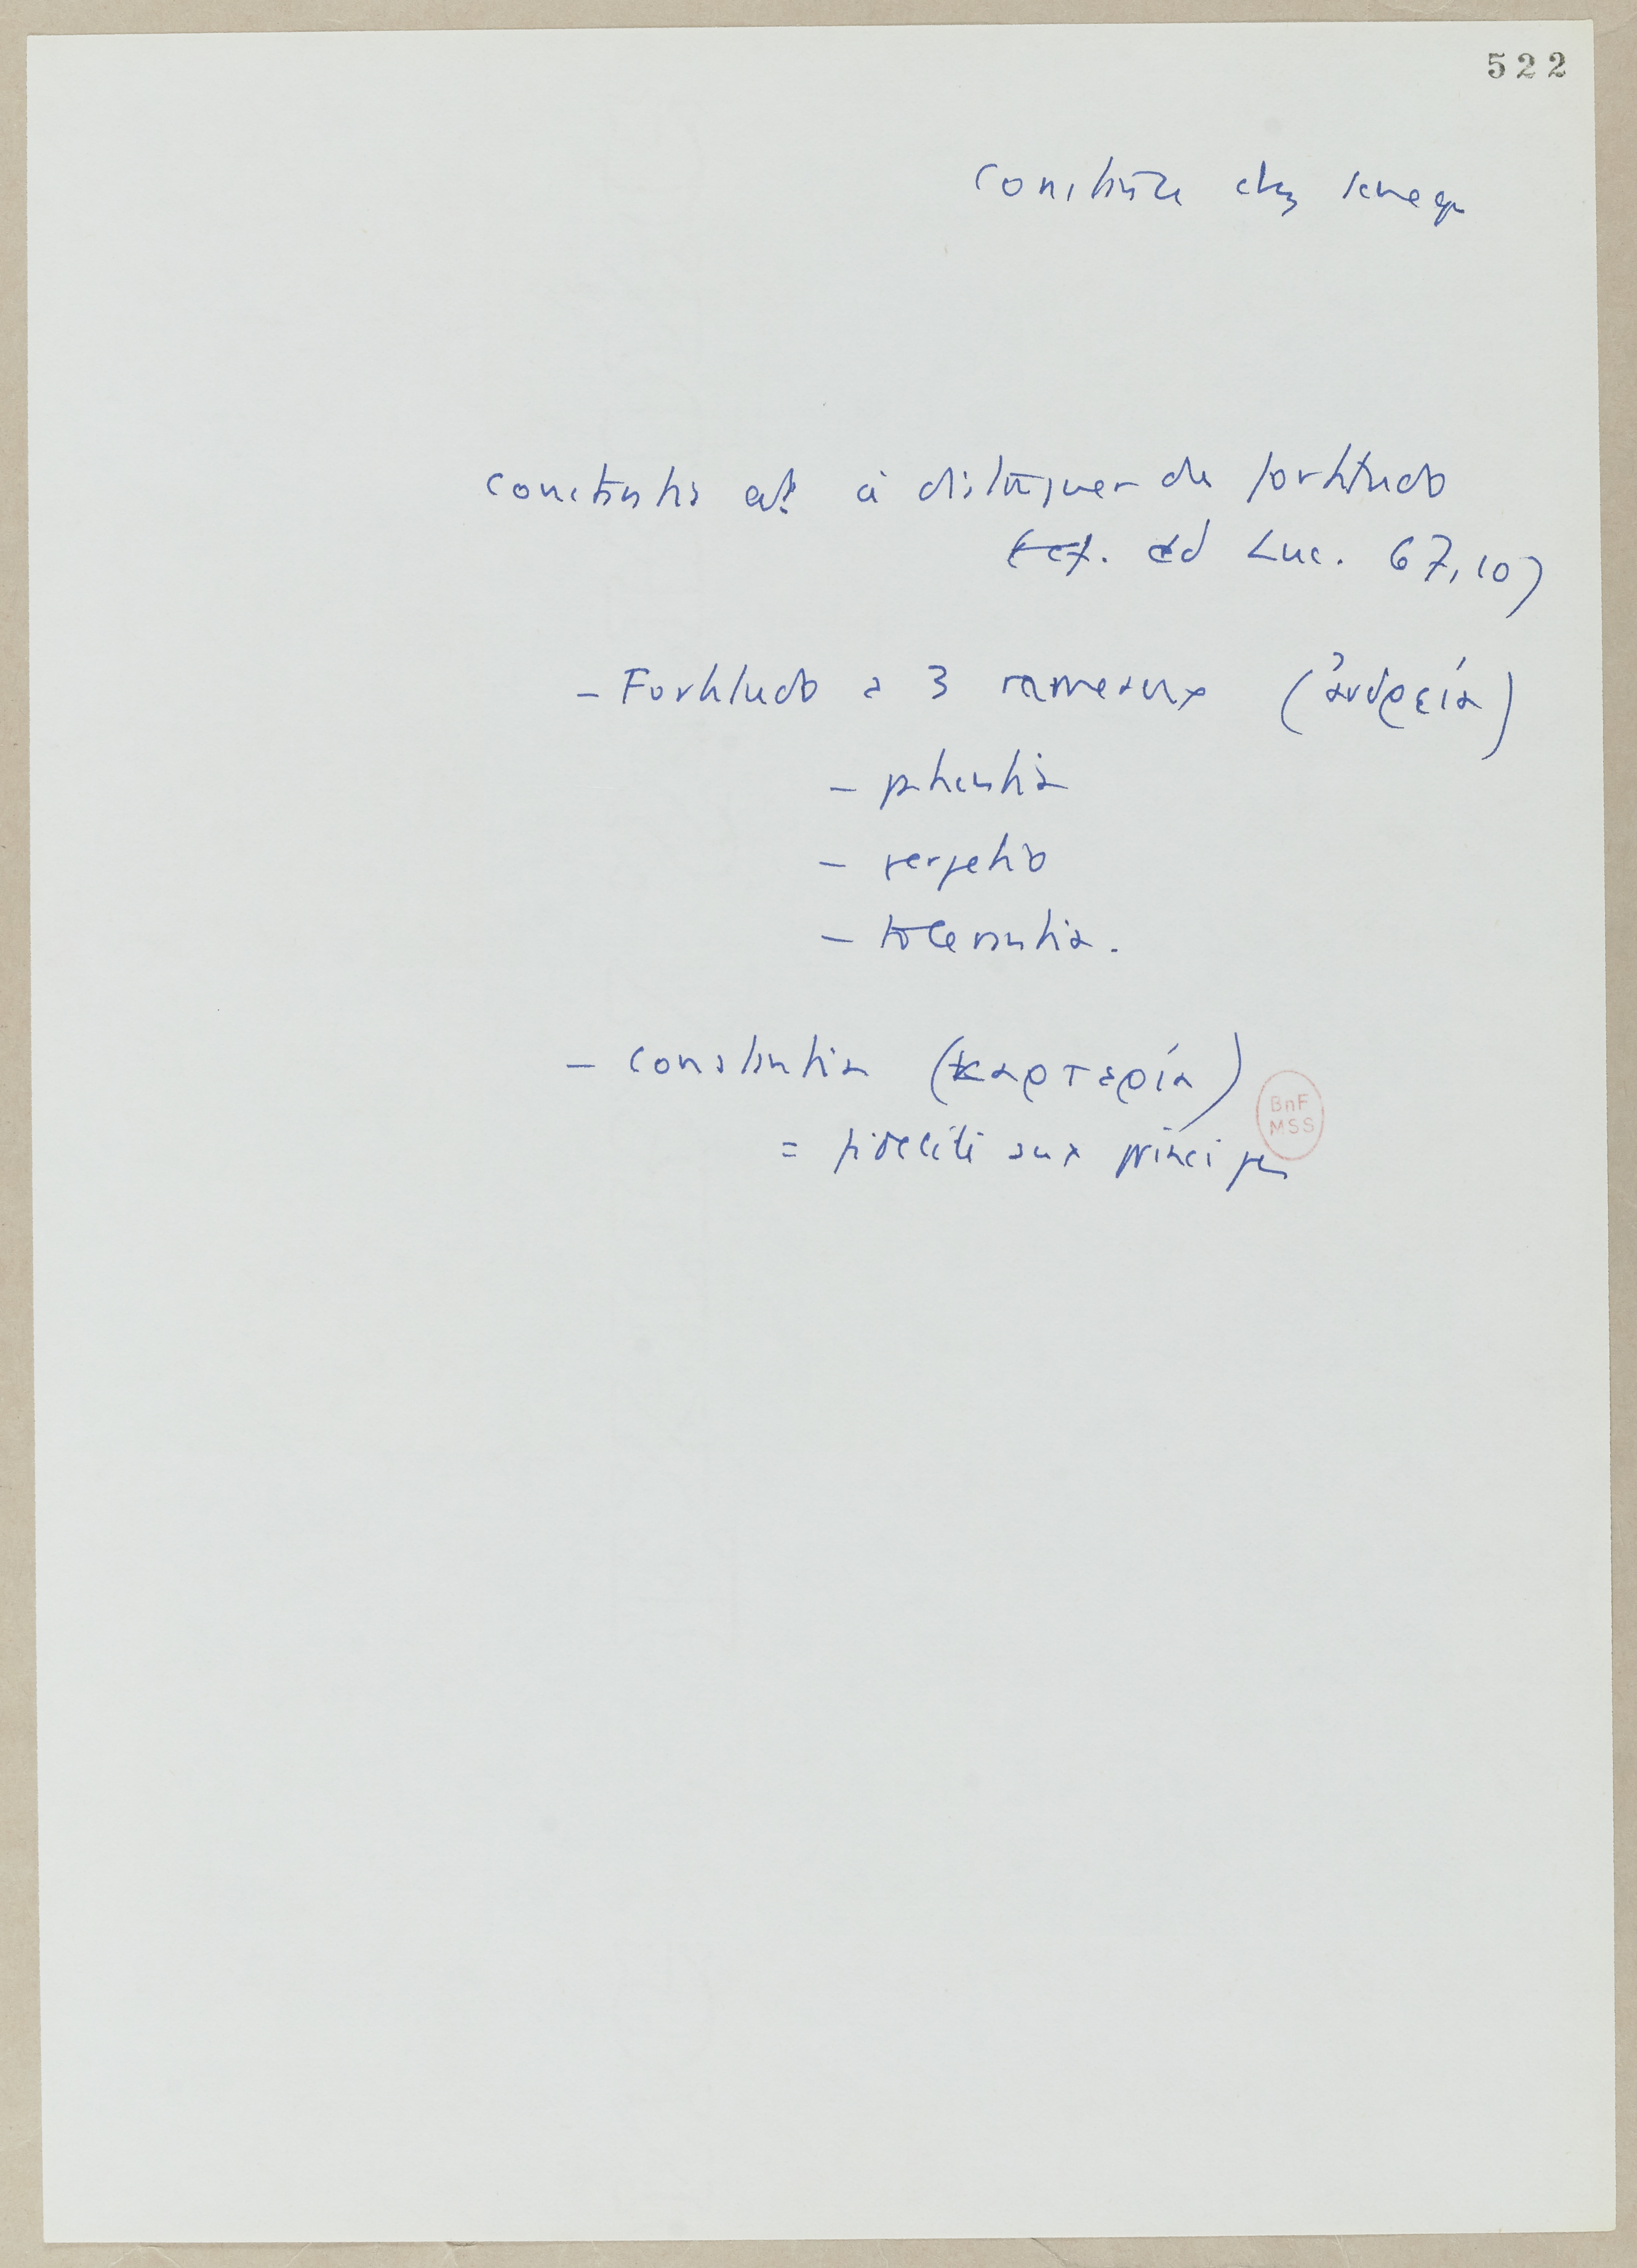 522
Constantia chez Seneque
Constantia est à distinguer de fortitudo
(cf. ad Luc. 67, 10)
- Fortitudo a 3 rameaux (ἀνδρεία)
- patientia
- perpetio
- tolerantia.
- Constantia (καρτερία)
= fidélité aux principes
BnF
MSS